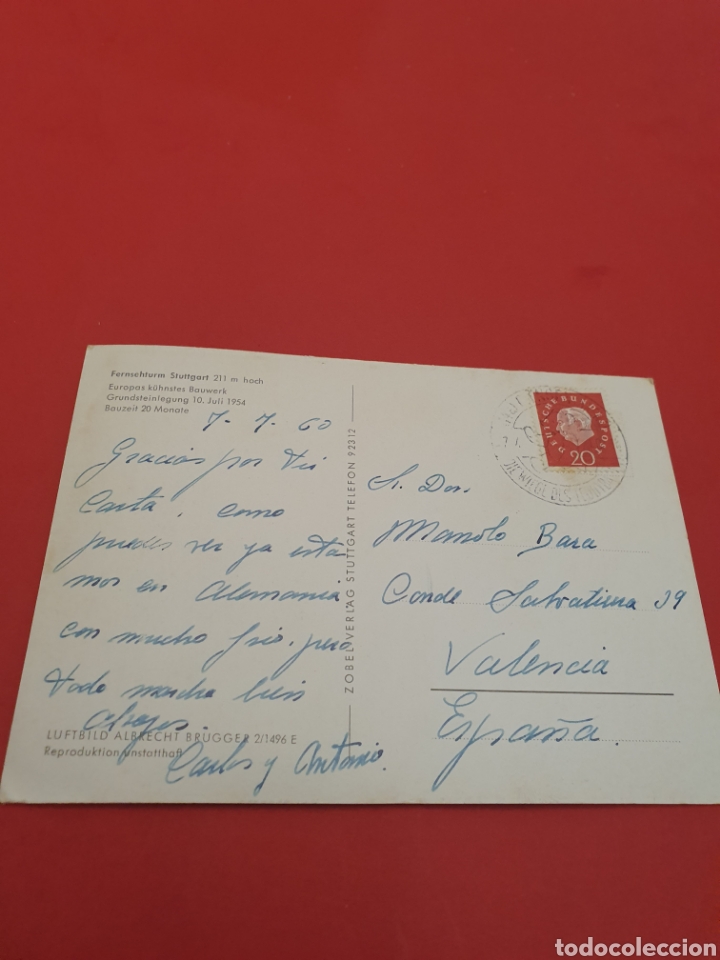 Fernsehturm Stuttgart 211 m hoch
Europas kühnstes Bauwerk
Grundsteinlegung 10. Juli 1954
Bauzeit 20 Monate
7-7-60
Gracias por tu
Carta, como
puedes ver ya esta
mos en Alemania
con mucho frio, pero
todo marcha bien
Carlos y Antonio.
LUFTBILD ALBRECHT BRUGGER 2/1496 E
Reproduktion unstatthaft
ZOBEL-VERLAG STUTTGART TELEFON 92312
DEUTSCHE BUNDESPOST
20
DIE WIEGE DES
Sr. Don.
Manolo Bara
Conde Salvatierra 39
Valencia
España.
todocoleccion